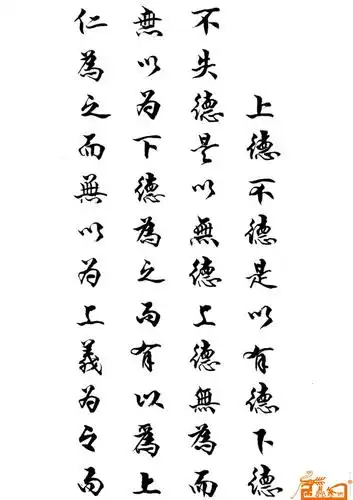 上德不德是以有德下德
不失德是以無德上德無為而
無以为下德為之而有以為上
仁為之而無以为上義为之而